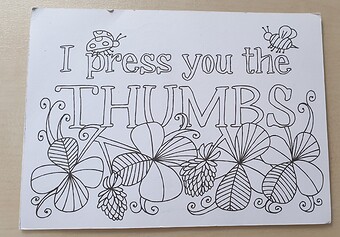 I press you the
THUMBS